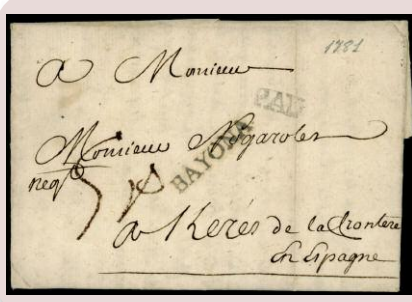 1781
a Monsieur
PAU
Monsieur Nogaroles
BAYONA
neg.t
a Keres de la Frontere
en Espagne